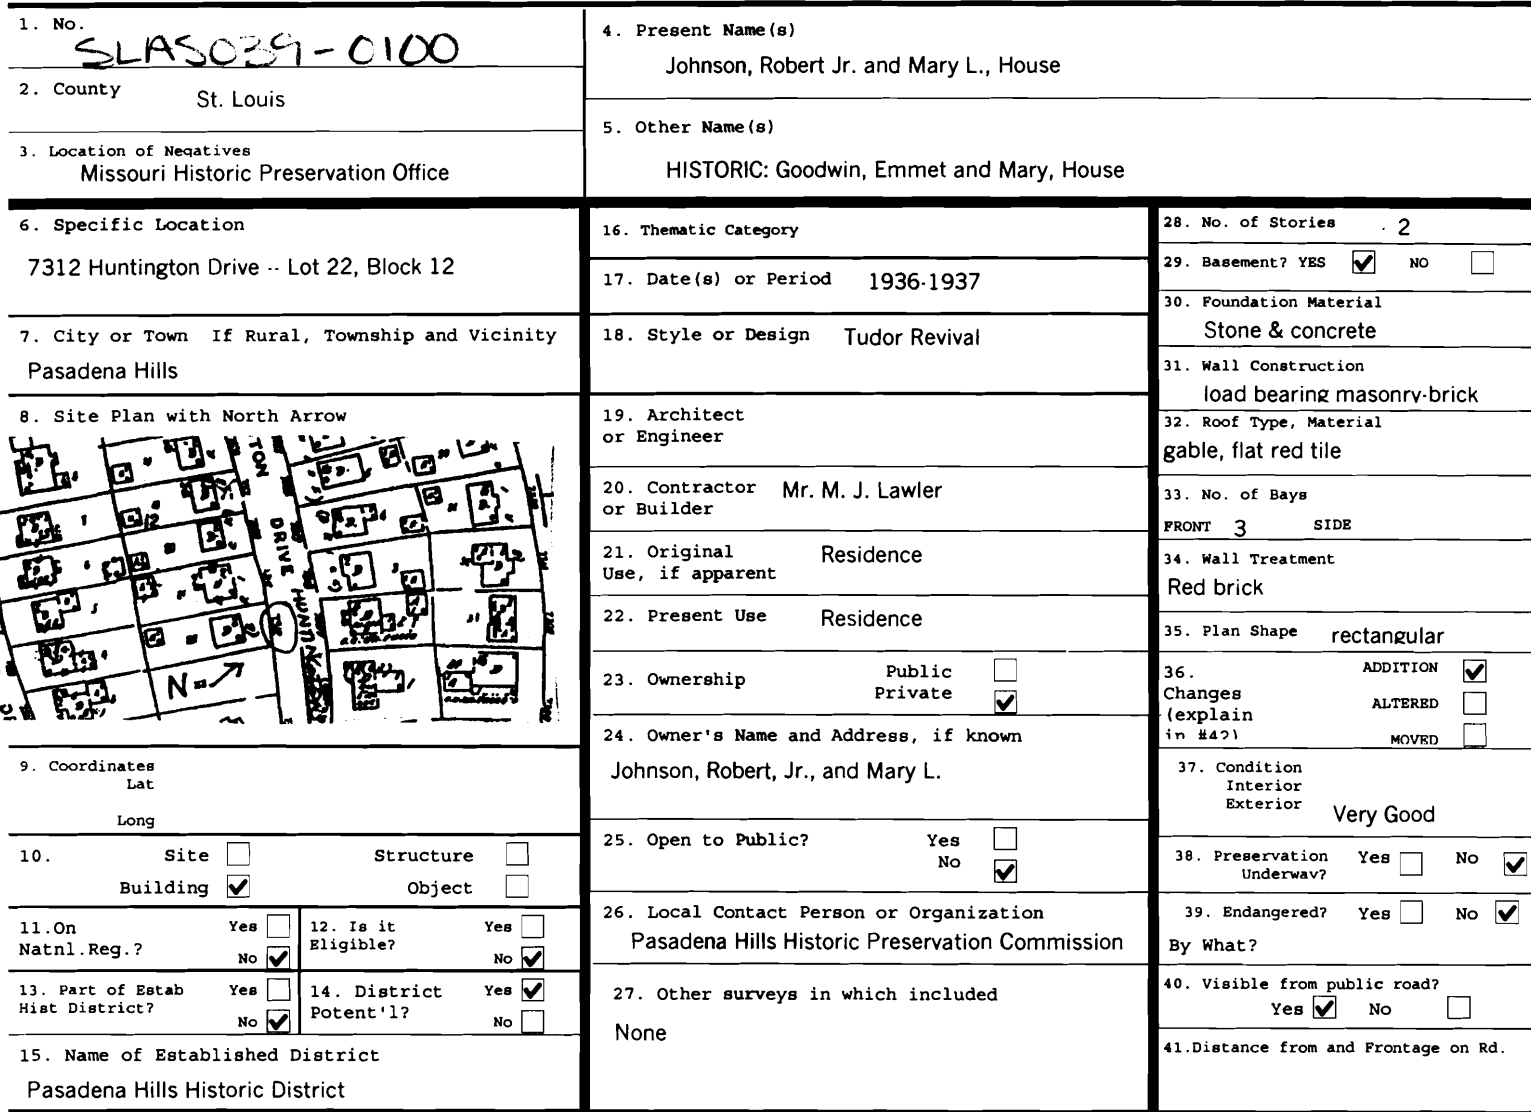 1. No.
SLAS039-0100
2. County
St. Louis
3. Location of Negatives
Missouri Historic Preservation Office
4. Present Name(s)
Johnson, Robert Jr. and Mary L., House
5. Other Name(s)
HISTORIC: Goodwin, Emmet and Mary, House
6. Specific Location
7312 Huntington Drive -- Lot 22, Block 12
7. City or Town If Rural, Township and Vicinity
Pasadena Hills
8. Site Plan with North Arrow
TON
DRIVE
HUNTIN
N
9. Coordinates
Lat
Long
10. Site Structure
Building ✔ Object
11.On Yes
Natnl.Reg.? No ✔
12. Is it Yes
Eligible? No ✔
13. Part of Estab Yes
Hist District? No ✔
14. District Yes ✔
Potent'l? No
15. Name of Established District
Pasadena Hills Historic District
16. Thematic Category
17. Date(s) or Period 1936-1937
18. Style or Design Tudor Revival
19. Architect
or Engineer
20. Contractor Mr. M. J. Lawler
or Builder
21. Original Residence
Use, if apparent
22. Present Use Residence
23. Ownership Public
Private ✔
24. Owner's Name and Address, if known
Johnson, Robert, Jr., and Mary L.
25. Open to Public? Yes
No ✔
26. Local Contact Person or Organization
Pasadena Hills Historic Preservation Commission
27. Other surveys in which included
None
28. No. of Stories 2
29. Basement? YES ✔ NO
30. Foundation Material
Stone & concrete
31. Wall Construction
load bearing masonry-brick
32. Roof Type, Material
gable, flat red tile
33. No. of Bays
FRONT 3 SIDE
34. Wall Treatment
Red brick
35. Plan Shape rectangular
36. ADDITION ✔
Changes
(explain ALTERED
in #42) MOVED
37. Condition
Interior
Exterior Very Good
38. Preservation Yes No ✔
Underway?
39. Endangered? Yes No ✔
By What?
40. Visible from public road?
Yes ✔ No
41.Distance from and Frontage on Rd.